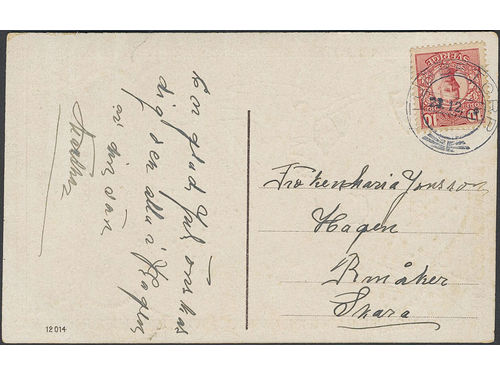 En god Jul önskas
dig och alla i Hagen
av din vän
Fröken Maria Jonsson
Hagen
Rmåker
Skara
SVERIGE
10
12 014